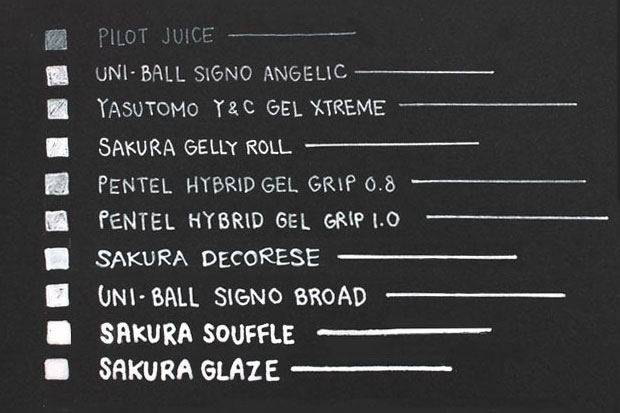 PILOT JUICE
UNI-BALL SIGNO ANGELIC
YASUTOMO Y&C GEL XTREME
SAKURA GELLY ROLL
PENTEL HYBRID GEL GRIP 0.8
PENTEL HYBRID GEL GRIP 1.0
SAKURA DECORESE
UNI-BALL SIGNO BROAD
SAKURA SOUFFLE
SAKURA GLAZE